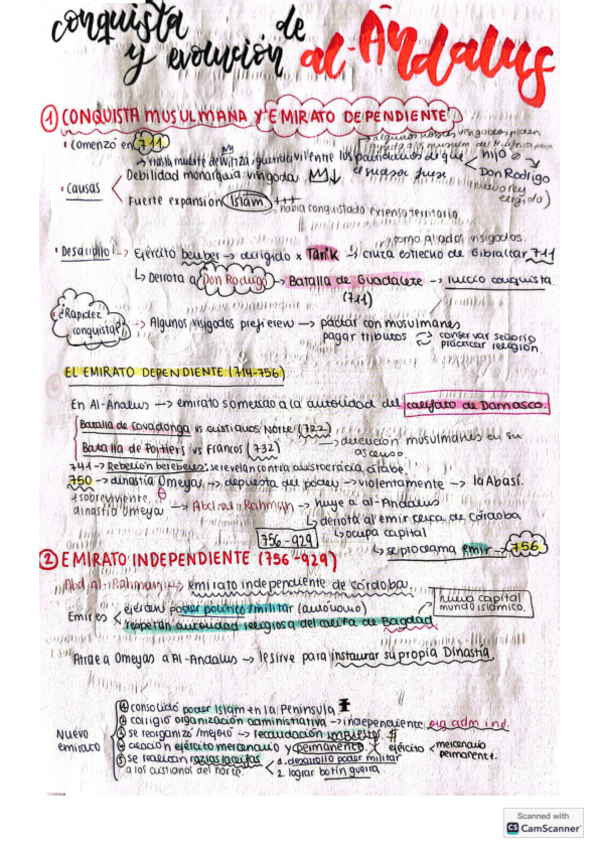 conquista de
y evolución al-Ándalus
① CONQUISTA MUSULMANA Y EMIRATO DEPENDIENTE
• Comenzó en 711
→ algunos nobles visigodos piden
→ tras la muerte de Witiza, guerra civil entre los partidarios de que
el sucesor fuese
hijo
Don Rodrigo
(nuevo rey
elegido)
• Causas
Debilidad monarquía visigoda
Fuerte expansión Islam +++
→ había conquistado extenso territorio.
como aliados visigodos.
• Desarrollo → Ejército bereber → dirigido x Tarik → cruza estrecho de Gibraltar 711
↳ Derrota a Don Rodrigo → Batalla de Guadalete → inicio conquista.
(711)
¿Rapidez
conquista?
→ Algunos visigodos prefieren → pactar con musulmanes
pagar tributos
conservar señorío
practicar religión
EL EMIRATO DEPENDIENTE (714-756)
En Al-Ándalus → emirato sometido a la autoridad del califato de Damasco.
Batalla de Covadonga vs cristianos Norte (722)
Batalla de Poitiers vs Francos (732)
→ detención musulmanes en su
ascenso.
741 → Rebelión bereberes: se revelan contra aristocracia árabe.
750 → dinastía Omeyas → depuesta del poder → violentamente → la Abasí.
1 sobreviviente
dinastía Omeya → Abd-al-Rahman → huye a al-Andalus
↳ derrota al emir cerca de Córdoba
↳ ocupa capital
756-929
↳ se proclama emir → 756
② EMIRATO INDEPENDIENTE (756-929)
Abd al-Rahman → emirato independiente de córdoba.
Emires
ejercían poder político/militar (autónomo)
respetan autoridad religiosa del califa de Bagdad
nueva capital
mundo islámico.
Atrae a Omeyas a Al-Andalus → le sirve para instaurar su propia Dinastía
Nuevo
emirato
① consolidó poder Islam en la Península
② corrigió organización administrativa → independiente org adm ind.
③ se reorganizó/mejoró → recaudación impuestos $
④ creación ejército mercenario y permanente. ejército < mercenario
permanente.
⑤ se realizan razias/aceifas
a los cristianos del norte.
1. desarrollo poder militar
2. lograr botín guerra
Scanned with
CS CamScanner